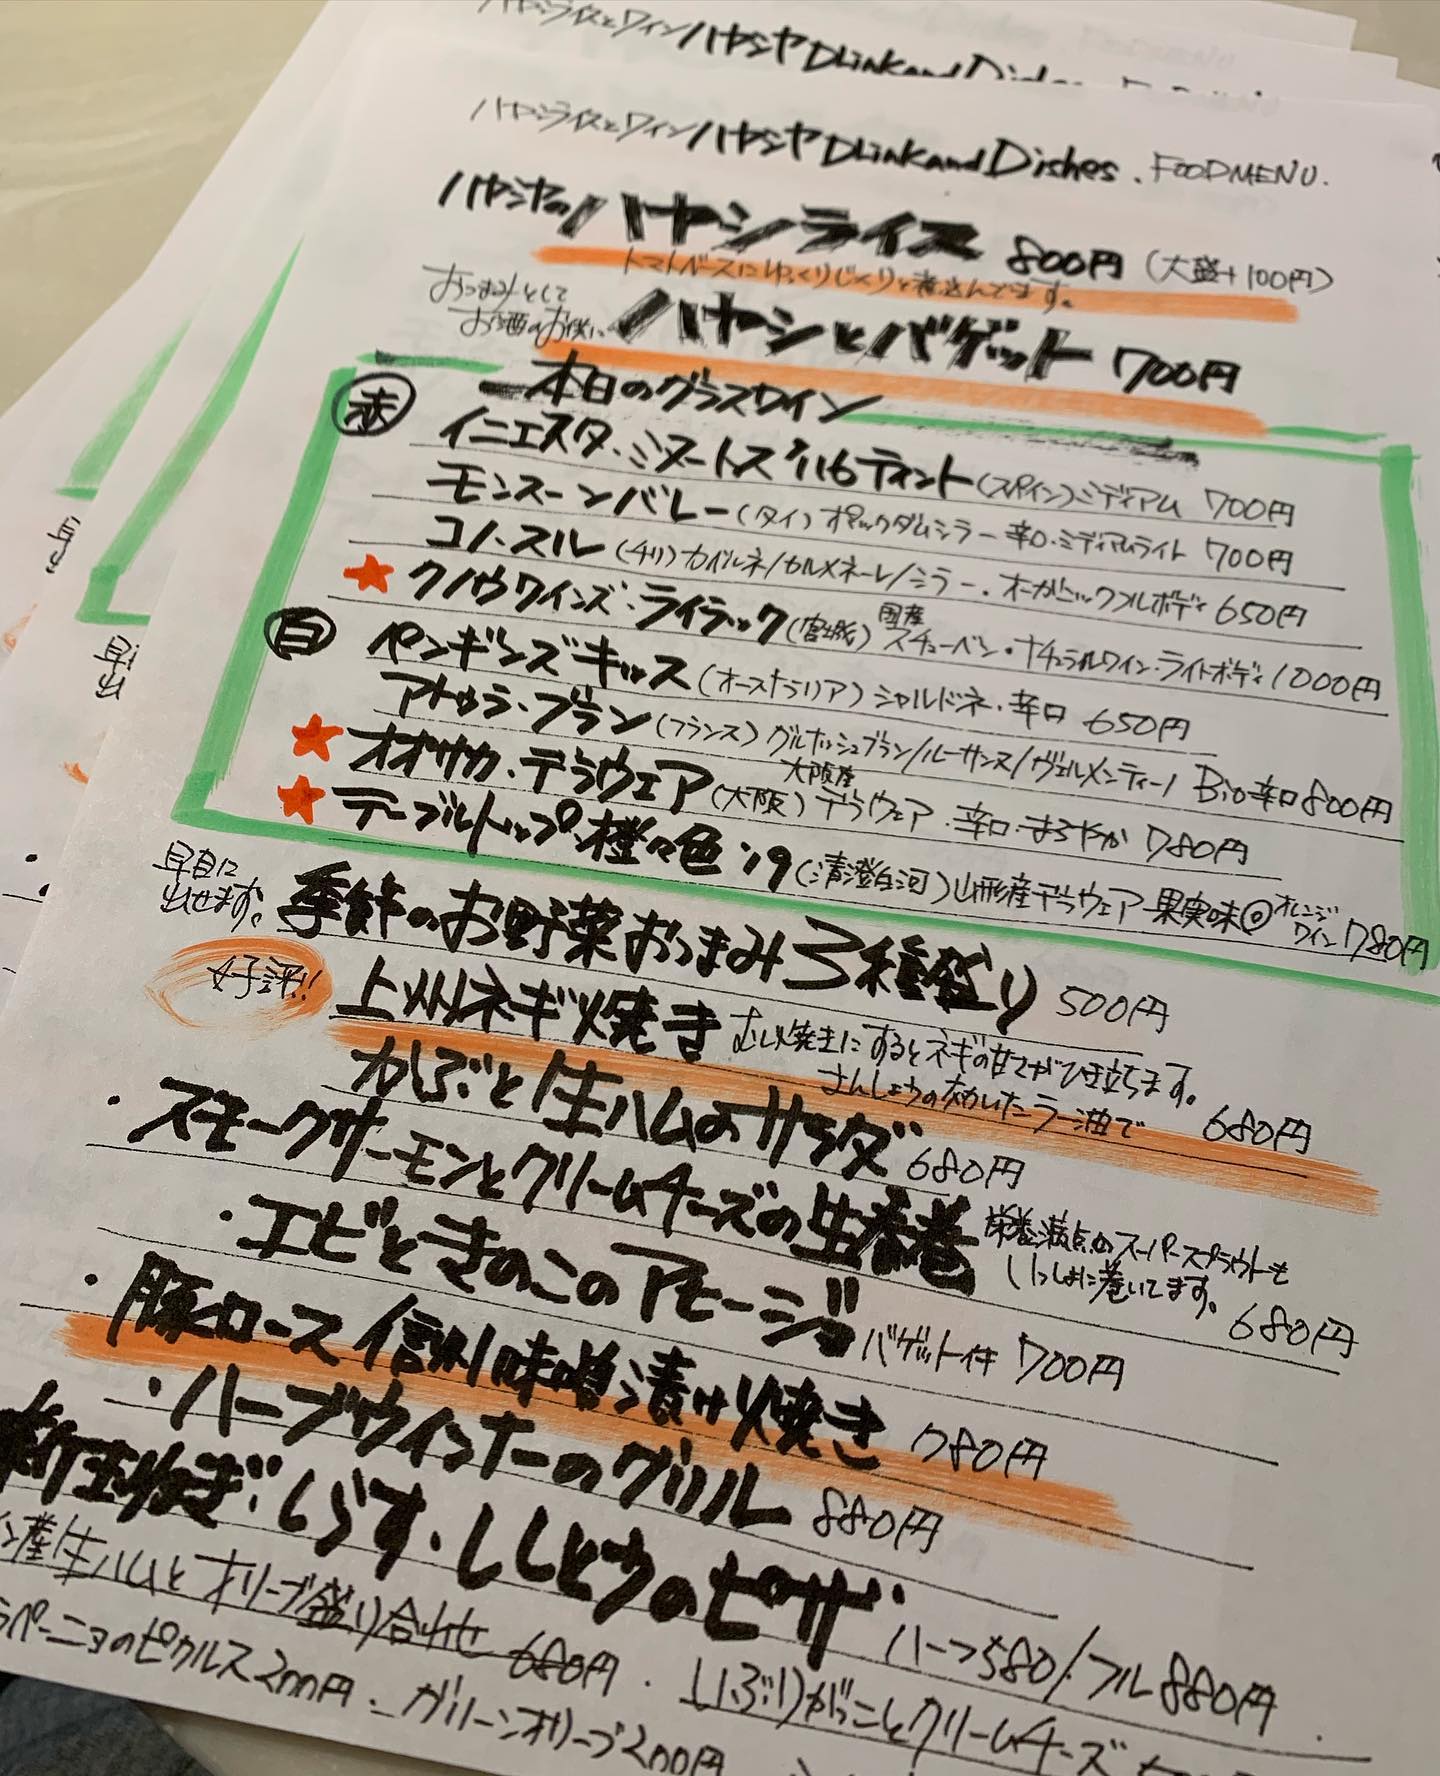 ハヤシライスとワイン ハヤシヤ DLink and Dishes
ハヤシライスとワイン ハヤシヤ DLink and Dishes . FOOD MENU.
ハヤシヤの ハヤシライス 800円 (大盛+100円)
トマトベースにゆっくりじっくりと煮込んでます。
おつまみとして
お酒のお供に ハヤシとバゲット 700円
本日のグラスワイン
赤 イニエスタ・ミヌートス '116 ティント (スペイン) ミディアム 700円
モンスーンバレー (タイ) ポックダムシラー 辛口・ミディアムライト 700円
コノ・スル (チリ) カベルネ/カルメネーレ/シラー・オーガニックフルボディ 650円
★ クノウワインズ・ライラック (宮城) 国産 スチューベン・ナチュラルワイン・ライトボディ 1000円
白 ペンギンズキッス (オーストラリア) シャルドネ・辛口 650円
アトゥラ・ブラン (フランス) グルナッシュブラン/ルーサンヌ/ヴェルメンティーノ Bio 辛口 800円
★ オオサカ・デラウェア (大阪) 大阪産 デラウェア・辛口・まろやか 780円
★ テーブルトップ 橙々色 '19 (清澄白河) 山形産デラウェア 果実味◎ オレンジワイン 780円
早目に
出せます。 季節のお野菜おつまみ3種盛り 500円
好評!! 上州ネギ焼き むし焼きにするとネギの甘さがひき立ちます。
さんしょうの効いたラー油で 680円
かぶと生ハムのサラダ 680円
・スモークサーモンとクリームチーズの生春巻 栄養満点のスーパースプラウトも
いっしょに巻いてます。 680円
・エビときのこのアヒージョ バゲット付 700円
・豚ロース 信州味噌漬け焼き 780円
・ハーブウインナーのグリル 880円
新玉ねぎ・しらす・ししとうのピザ ハーフ580/フル880円
産生ハムとオリーブ盛り合わせ 680円 . いぶりがっことクリームチーズ
ペーニョのピクルス 200円 . グリーンオリーブ 200円
早目
出